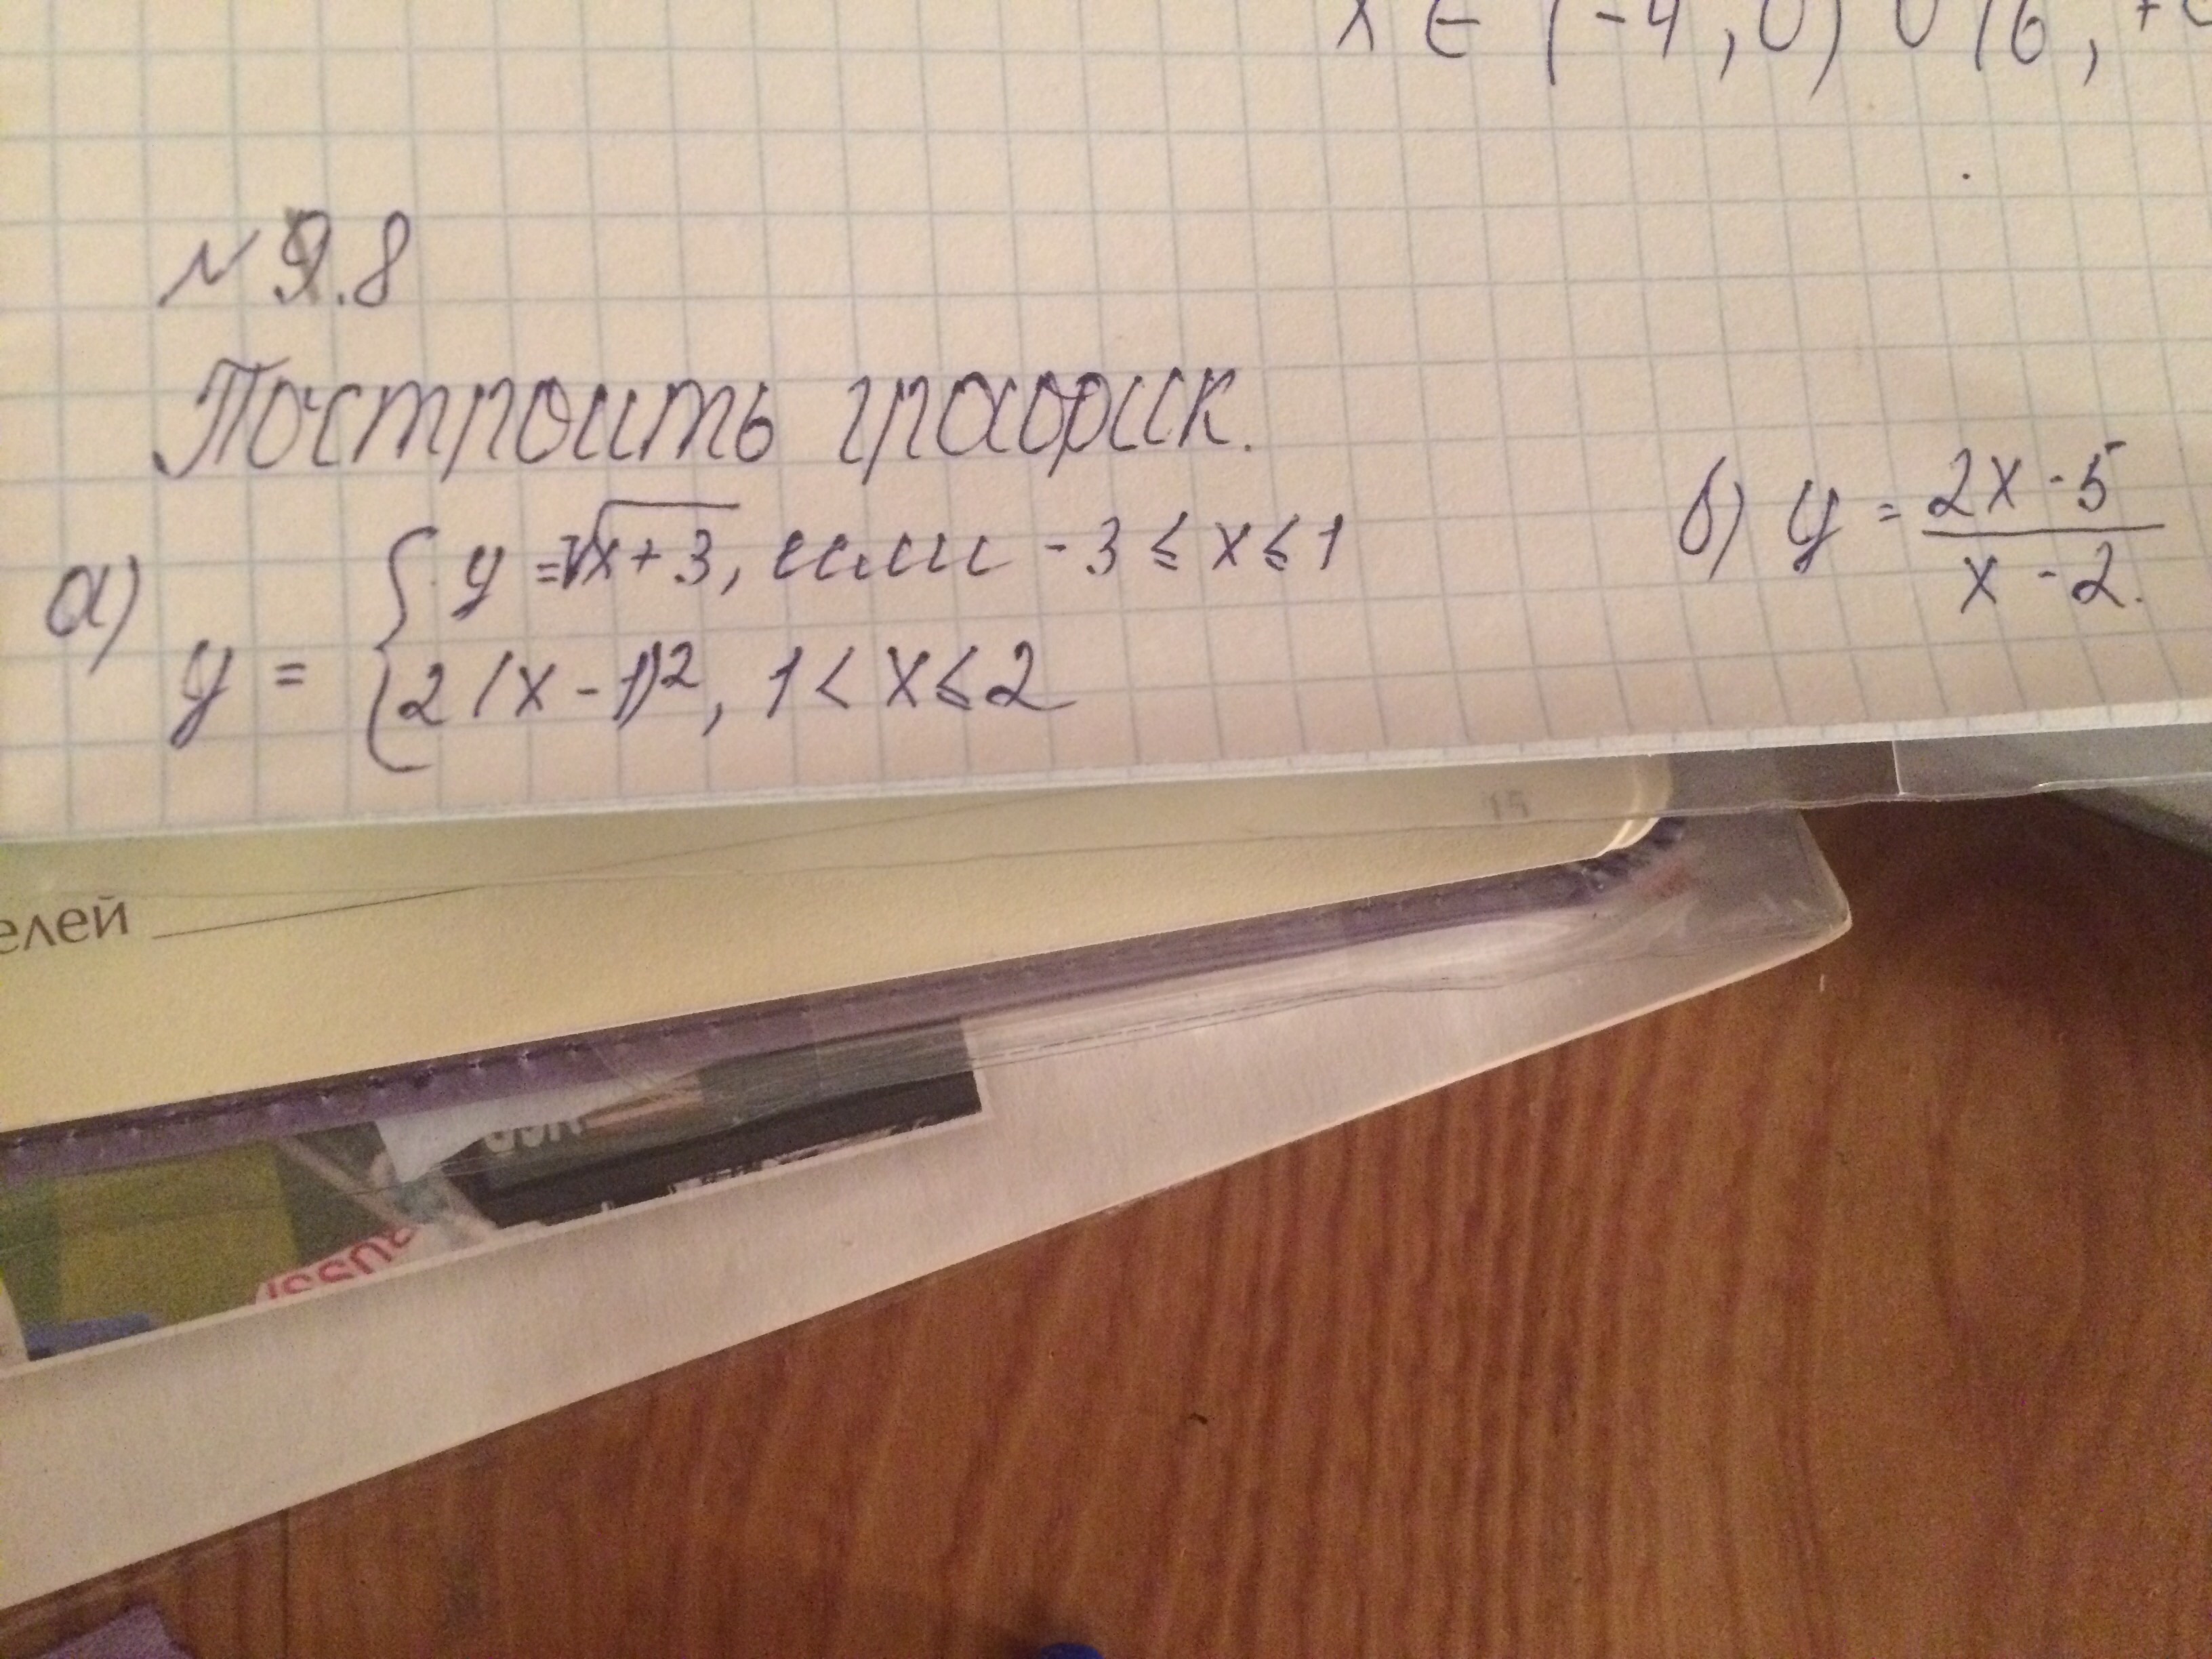 x ∈ (-4, 0) ∪ (6, +
№ 9.8
Построить график.
а) y = { y = √x+3, если -3 ≤ x ≤ 1
2(x-1)², 1 < x ≤ 2
б) y = (2x-5)/(x-2).
15
елей